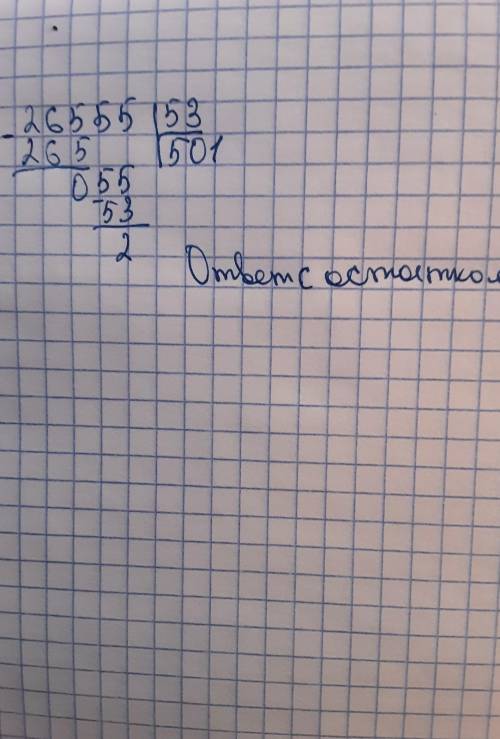 - 26555 53
265 501
055
53
2
Ответ с остатком